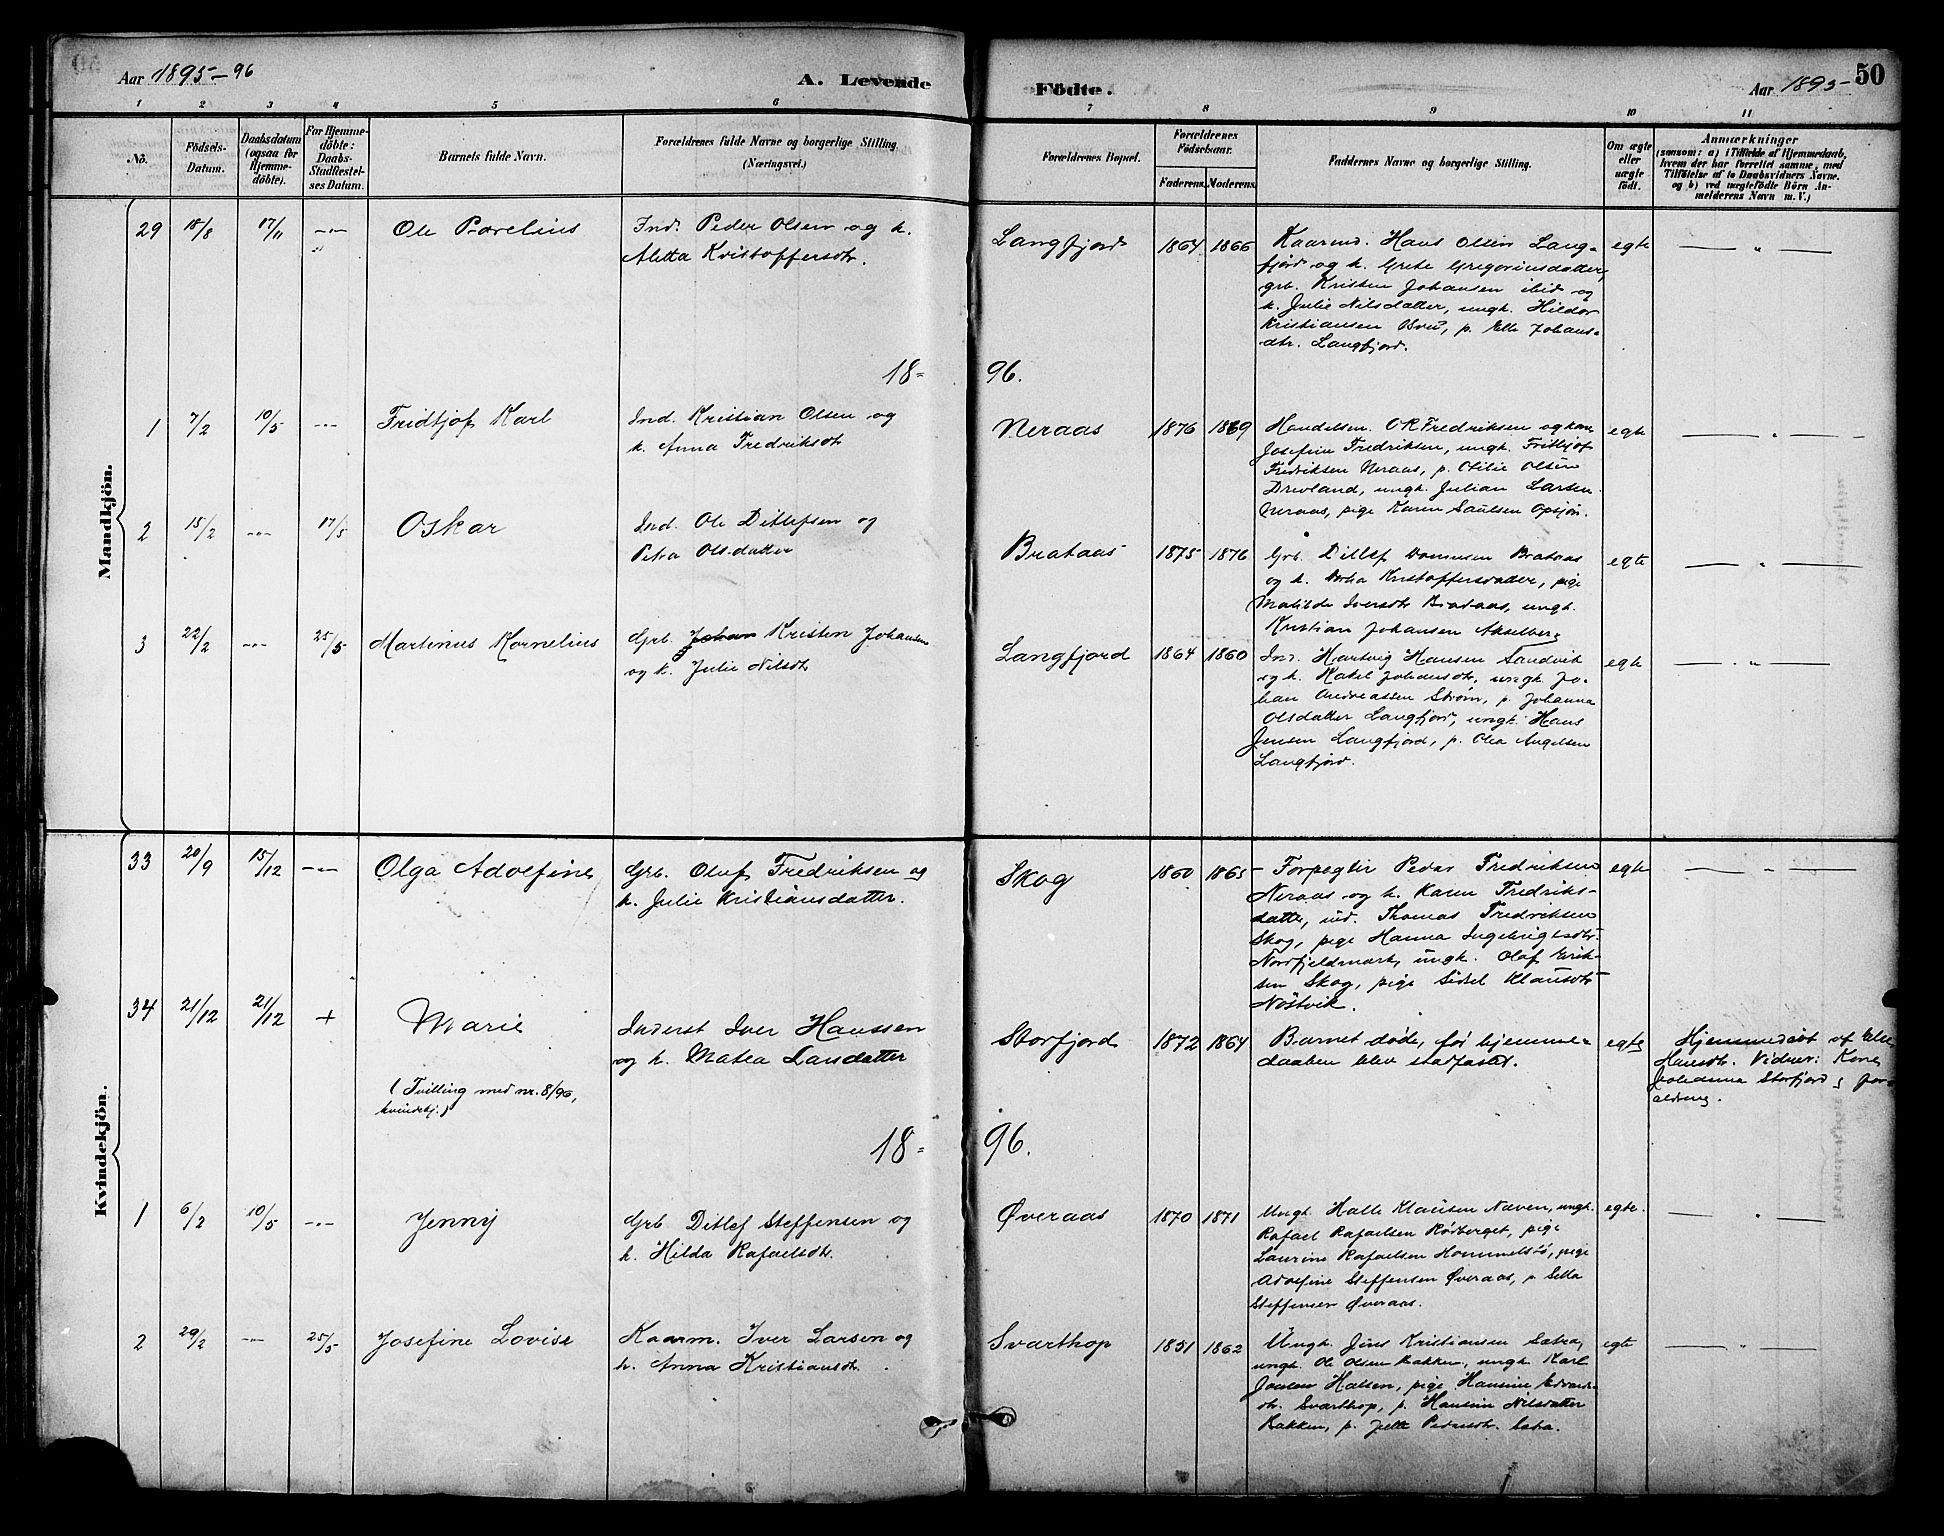 Aar 1895-96
A. Levende
Födte.
Aar 1895-
50
1 2 3 4 5 6 7 8 9 10 11
No.
Födsels-
Datum.
Daabsdatum
(ogsaa for
Hjemme-
döbte).
For Hjemme-
döbte:
Daabs-
Stadfæstel-
ses Datum.
Barnets fulde Navn.
Forældrenes fulde Navne og borgerlige Stilling.
(Næringsvei.)
Forældrenes Bopæl.
Forældrenes
Födselsaar.
Faderens. Moderens.
Faddernes Navne og borgerlige Stilling.
Om ægte
eller
uægte
födt.
Anmærkninger
(saasom: a) i Tilfælde af Hjemmedaab,
hvem der har forrettet samme, med
Tilföielse af to Daabsvidners Navne,
og b) ved uægtefödte Börn An-
melderens Navn m. V.)
Mandkjön.
29 18/8 17/11 -"-
Ole Parelius
Ind. Peder Olsen og h.
Aletta Kristoffersdtr.
Langfjord 1864 1866
Kaarmd. Hans Olsen Lang-
fjord og h. Grete Gregoriusdatter,
grb. Kristen Johansen ibid og
h. Julie Nilsdatter, ungk. Hildor
Kristiansen , p. Elle Johans-
dtr. Langfjord.
egte
— " —
18= 96.
1 7/2 10/5 -"-
Fridtjof Karl
Ind. Kristian Olsen og
h. Anna Fredriksdtr
Neraas 1876 1869
Handelsm. O R Fredriksen og kone
Josefine Fredriksen, ungk. Frithjof
Fredriksen Neraas, p. Otilie Olsen
Drevland, ungk. Julian Larsen
Neraas, pige Karen Saulsen Opsjøn.
egte
— " —
2 15/2 -"- 17/5
Oskar
Ind. Ole Ditlefsen og
Petra Olsdatter
Brataas 1875 1876
Grb. Ditlef Brataas
og h. Kristoffersdatter, pige
Matilde Iversdtr Brataas, ungk.
Kristian Johansen Akselberg
egte
— " —
3 22/2 -"- 25/5
Martinus Kornelius
Grb. Johan Kristen Johansen
og h. Julie Nilsdtr
Langfjord 1864 1860
Ind. Hartvig Hansen Sandvik
og h. Rakel Johansdtr, ungk. Jo-
han Andreassen Strøm, p. Johanna
Olsdatter Langfjord, ungk. Hans
Jensen Langfjord, p. Olea Angelsen
Langfjord.
egte
— " —
Kvindekjön.
33 20/9 15/12 -"-
Olga Adolfine
Grb. Oluf Fredriksen og
h. Julie Kristiansdatter.
Skog 1860 1865
Forpagter Peder Fredriksen
Neraas og h. Karen Fredriks-
datter, ind. Thomas Fredriksen
Skog, pige Hanna Ingebrigtsdtr.
Nordfjeldmark, ungk. Olaf Erik-
sen Skog, pige Sidsel Klausdtr
Nöstvik.
egte
— " —
34 21/12 21/12 +
Marie
Inderst Iver Hanssen
og h. Matea Larsdatter
(Tvilling med nr. 8/96,
kvindekj.)
Storfjord 1872 1864
Barnet døde, før hjemme-
daaben blev stadfæstet.
egte
Hjemmedøbt af
Hansdtr. Vidner: Kone
Johanna Storfjord og for-
ældrene.
18= 96.
1 6/2 10/5 -"-
Jenny
Grb Ditlef Steffensen og
h. Hilda Rafaelsdtr.
Øveraas 1870 1871
Ungk. Halle Klausen Næven, ungk.
Rafael Rafaelsen Rødberget, pige
Laurine Rafaelsen Hommelstø, pige
Adolfine Steffensen Øveraas, p. Sella
Steffensen Øveraas.
egte.
— " —
2 29/2 -"- 25/5
Josefine Lovise
Kaarm. Iver Larsen og
h. Anna Kristiansdtr.
Svarthop 1851 1862
Ungk. Jens Kristiansen Sætra,
ungk. Ole Olsen Bakken, ungk Karl
Halsen, pige Hansine Edvards-
dtr. Svarthop, p. Hansine Nilsdatter
Bakken, p. Pedersdtr. Sætra.
egte
— " —